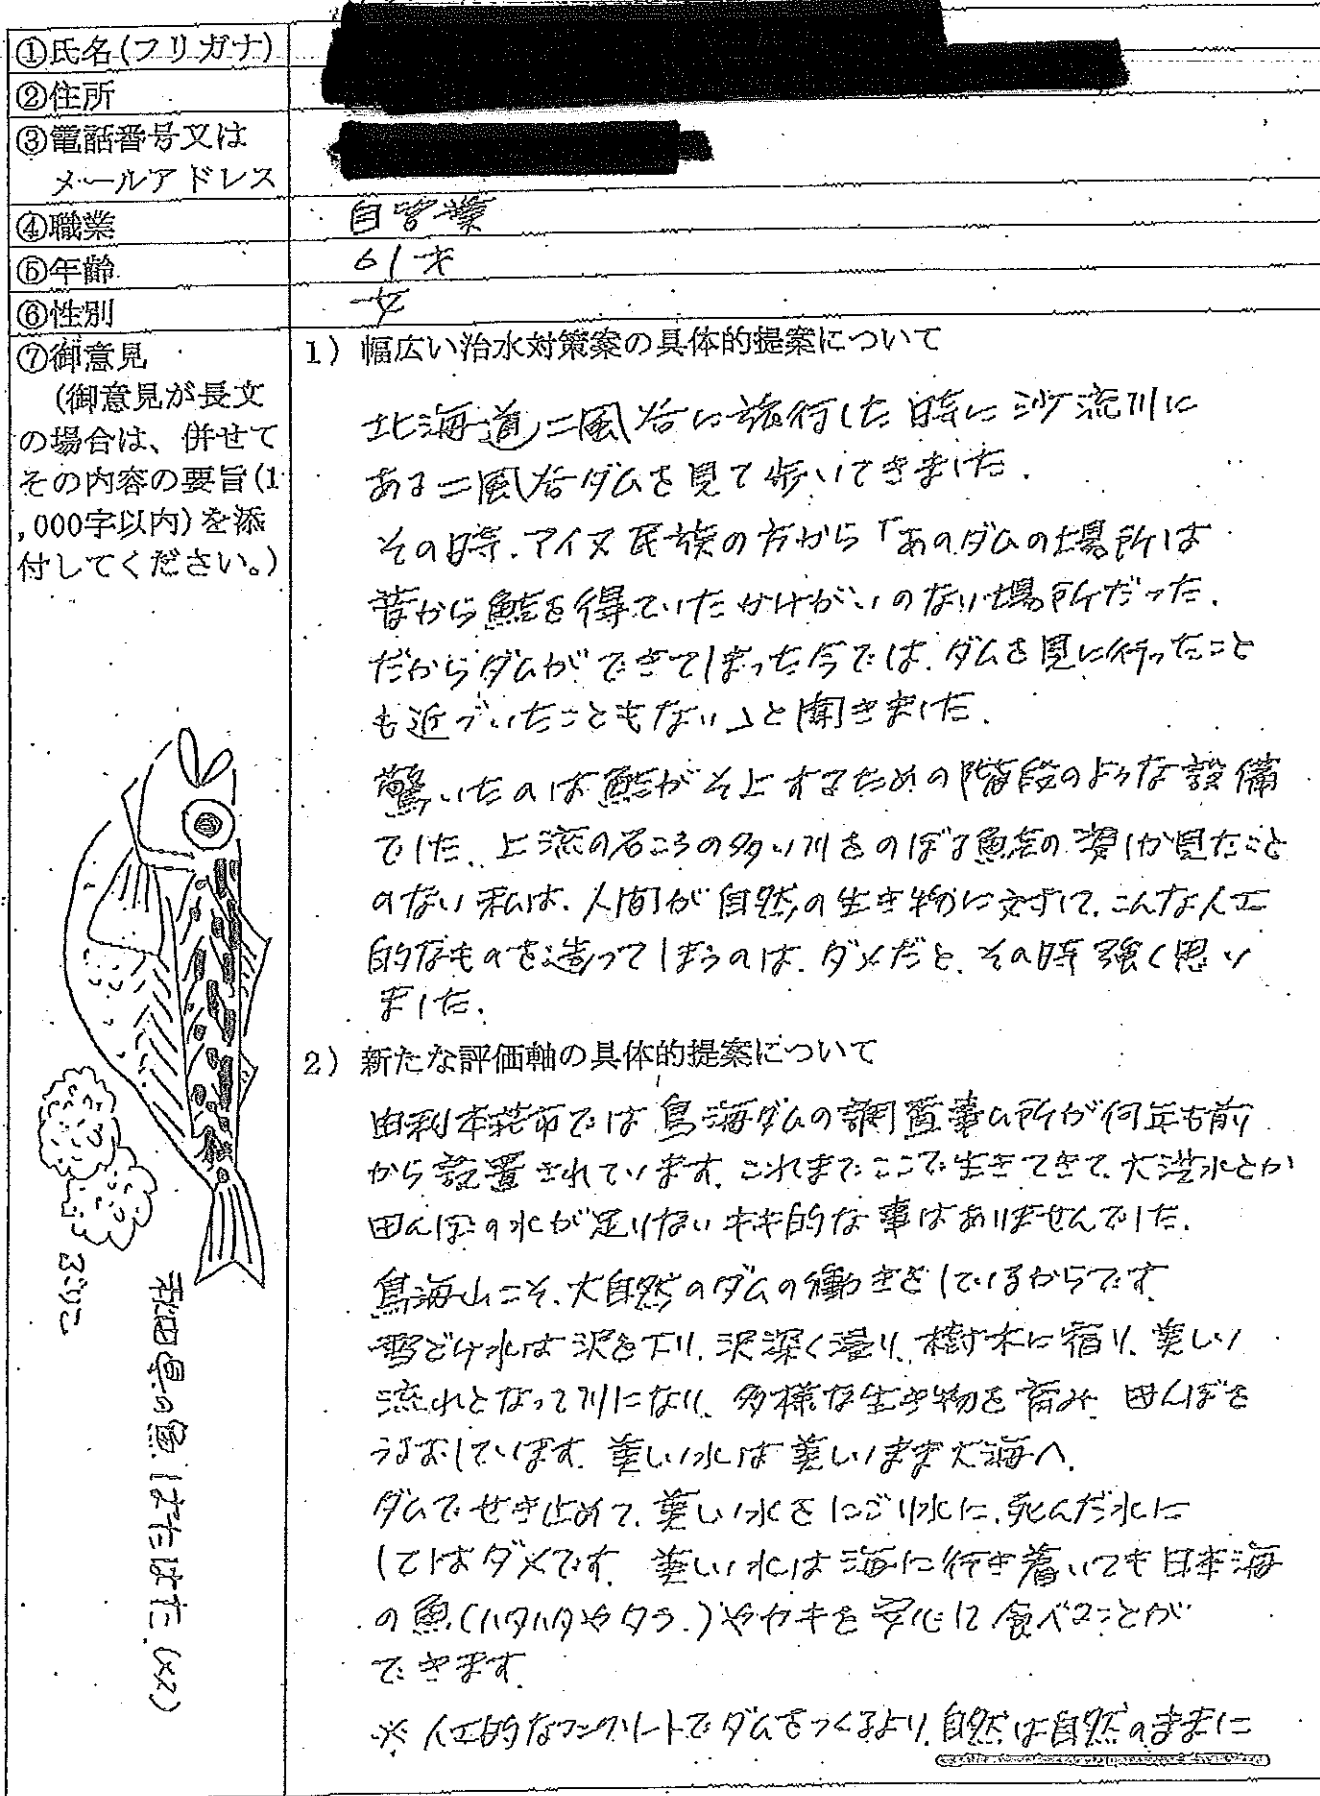 ①氏名(フリガナ)
②住所
③電話番号又は
メールアドレス
④職業
自営業
⑤年齢
61才
⑥性別
女
⑦御意見
(御意見が長文
の場合は、併せて
その内容の要旨(1
,000字以内)を添
付してください。)
1) 幅広い治水対策案の具体的提案について
北海道二風谷に旅行した時に沙流川に
ある二風谷ダムを見て歩いてきました.
その時.アイヌ民族の方から「あのダムの場所は
昔から鮭を得ていたかけがいのない場所だった.
だからダムができてしまった今では.ダムを見に行ったこと
も近づいたこともない」と聞きました.
驚いたのは鮭がそ上するための階段のような設備
でした.上流の石ころの多い川をのぼる鮭の姿しか見たこと
のない私は.人間が自然の生き物に対して.こんな人工
的なものを造ってしまうのは.ダメだと.その時強く思い
ました.
2) 新たな評価軸の具体的提案について
由利本荘市では鳥海ダムの調査事ム所が何年も前
から設置されています.これまでここで生きてきて.大洪水とか
田んぼの水が足りないキキ的な事はありませんでした.
鳥海山こそ.大自然のダムの働きをしているからです.
雪どけ水は沢を下り.沢深く湿り.樹木に宿り.美しい
流れとなって川になり.多様な生き物を育み.田んぼを
うるおしています.美しい水は美しいまま大海へ.
ダムでせき止めて.美しい水をにごり水に.死んだ水に
してはダメです.美しい水は海に行き着いても日本海
の魚(ハタハタやタラ.)やカキを安心して食べることが
できます.
※人工的なコンクリートでダムをつくるより.自然は自然のままに
ぶりこ
秋田県の魚 はたはた.(メス)